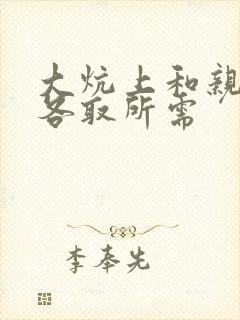 大炕上和亲
各取所需
李奉先